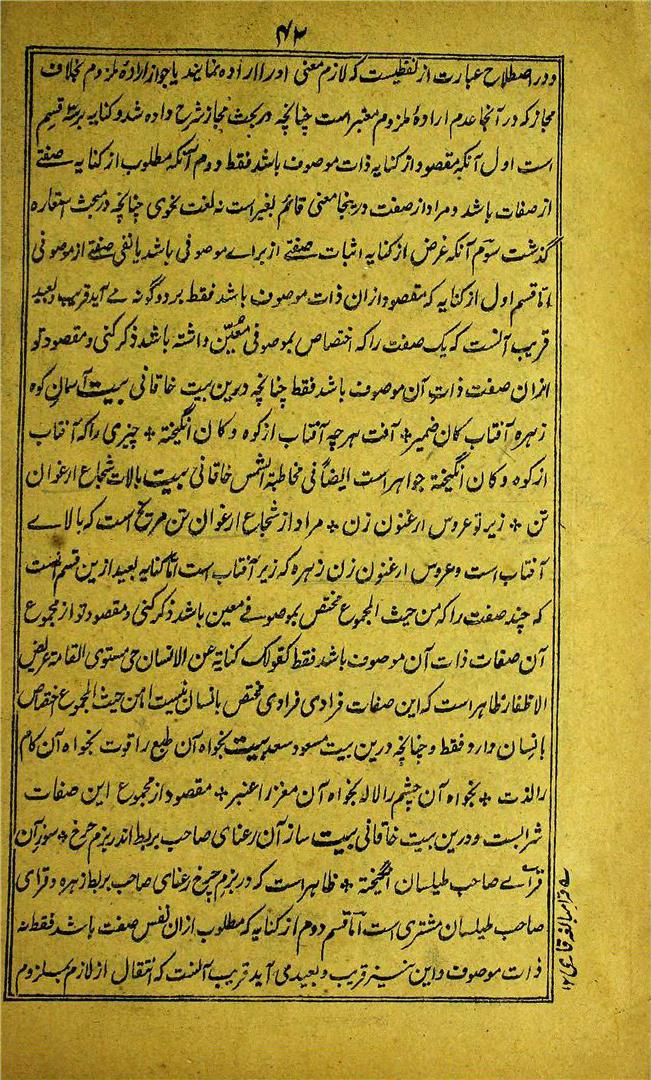 ۴۲
و در اصطلاح عبارت از لفظیست که لازم معنی اورا اراده نمایند با جواز ارادهٔ ملزوم بخلاف
مجاز که در آنجا عدم ارادهٔ ملزوم معتبر است چنانچه در بحث مجاز شرح داده شد و کنایه برسه قسم
است اول آنکه مقصود از کنایه ذات موصوف باشد فقط دوم آنکه مطلوب از کنایه صفتے
از صفات باشد و مراد از صفت درینجا معنی قائم بغیر است نه لغت نحوی چنانچه در مبحث استعاره
گذشت سوم آنکه غرض از کنایه اثبات صفتے از براے موصوفی باشد یا نفی صفتے از موصوفی
اما قسم اول از کنایه که مقصود ازان ذات موصوف باشد فقط بر دو گونه مے آید قریب و بعید
قریب آنست که یک صفت را که اختصاص بموصوفی معیّن داشته باشد ذکر کنی و مقصود تو
ازان صفت ذات آن موصوف باشد فقط چنانچه درین بیت خاقانی بیت آسمان کوه
زهره آفتاب کان ضمیر ٭ آفت هرچه آفتاب از کوه و کان انگیخته ٭ چیزی را که آفتاب
از کوه و کان انگیخته جواهر است ایضاً فی مخاطبة الشمس خاقانی بیت بالات شجاع ارغوان
تن ٭ زیر تو عروس ارغنون زن ٭ مراد از شجاع ارغوان تن مریخ است که بالاے
آفتاب است و عروس ارغنون زن زهره که زیر آفتاب است امّا کنایه بعید ازین قسم آنست
که چند صفت را که من حیث المجموع مختص بموصوفے معین باشد ذکر کنی و مقصود تو از مجموع
آن صفات ذات آن موصوف باشد فقط کقولک کنایة عن الانسان حی مستوی القامة عریض
الاظفار ظاهر است که این صفات فرادی فرادی مختص بانسان نیست امن حیث المجموع اختصاص
بانسان دارد فقط و چنانچه درین بیت مسعود سعد بیت بخواه آن طبع را قوت بخواه آن کام
را لذت ٭ بخواه آن چشم را لاله بخواه آن مغز را عنبر ٭ مقصود از مجموع این صفات
شرابست و درین بیت خاقانی بیت ساز آن رعنای صاحب بربط اندر بزم چرخ ٭ سوز آن
قراے صاحب طیلسان انگیخته ٭ ظاهر است که در بزم چرخ رعنای صاحب بربط زهره و قرای
صاحب طیلسان مشتری است امّا قسم دوم از کنایه که مطلوب ازان نفس صفت باشد فقط نه
ذات موصوف و این نیز قریب و بعید می آید قریب آنست که انتقال از لازم بملزوم
قرا مبالغه قاری ۱۲